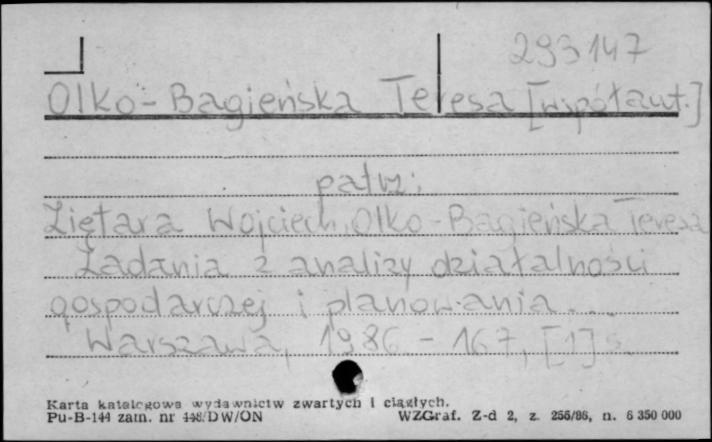 293147
Olko-Bagieńska Teresa [współaut.]
patrz:
Ziętara Wojciech, Olko-Bagieńska Teresa
Zadania z analizy działalności
gospodarczej i planowania...
Warszawa, 1986 - 167, [1] s.
Karta katalogowa wydawnictw zwartych i ciągłych.
Pu-B-144 zam. nr 448/DW/ON WZGraf. Z-d 2, z. 256/86, n. 6 350 000